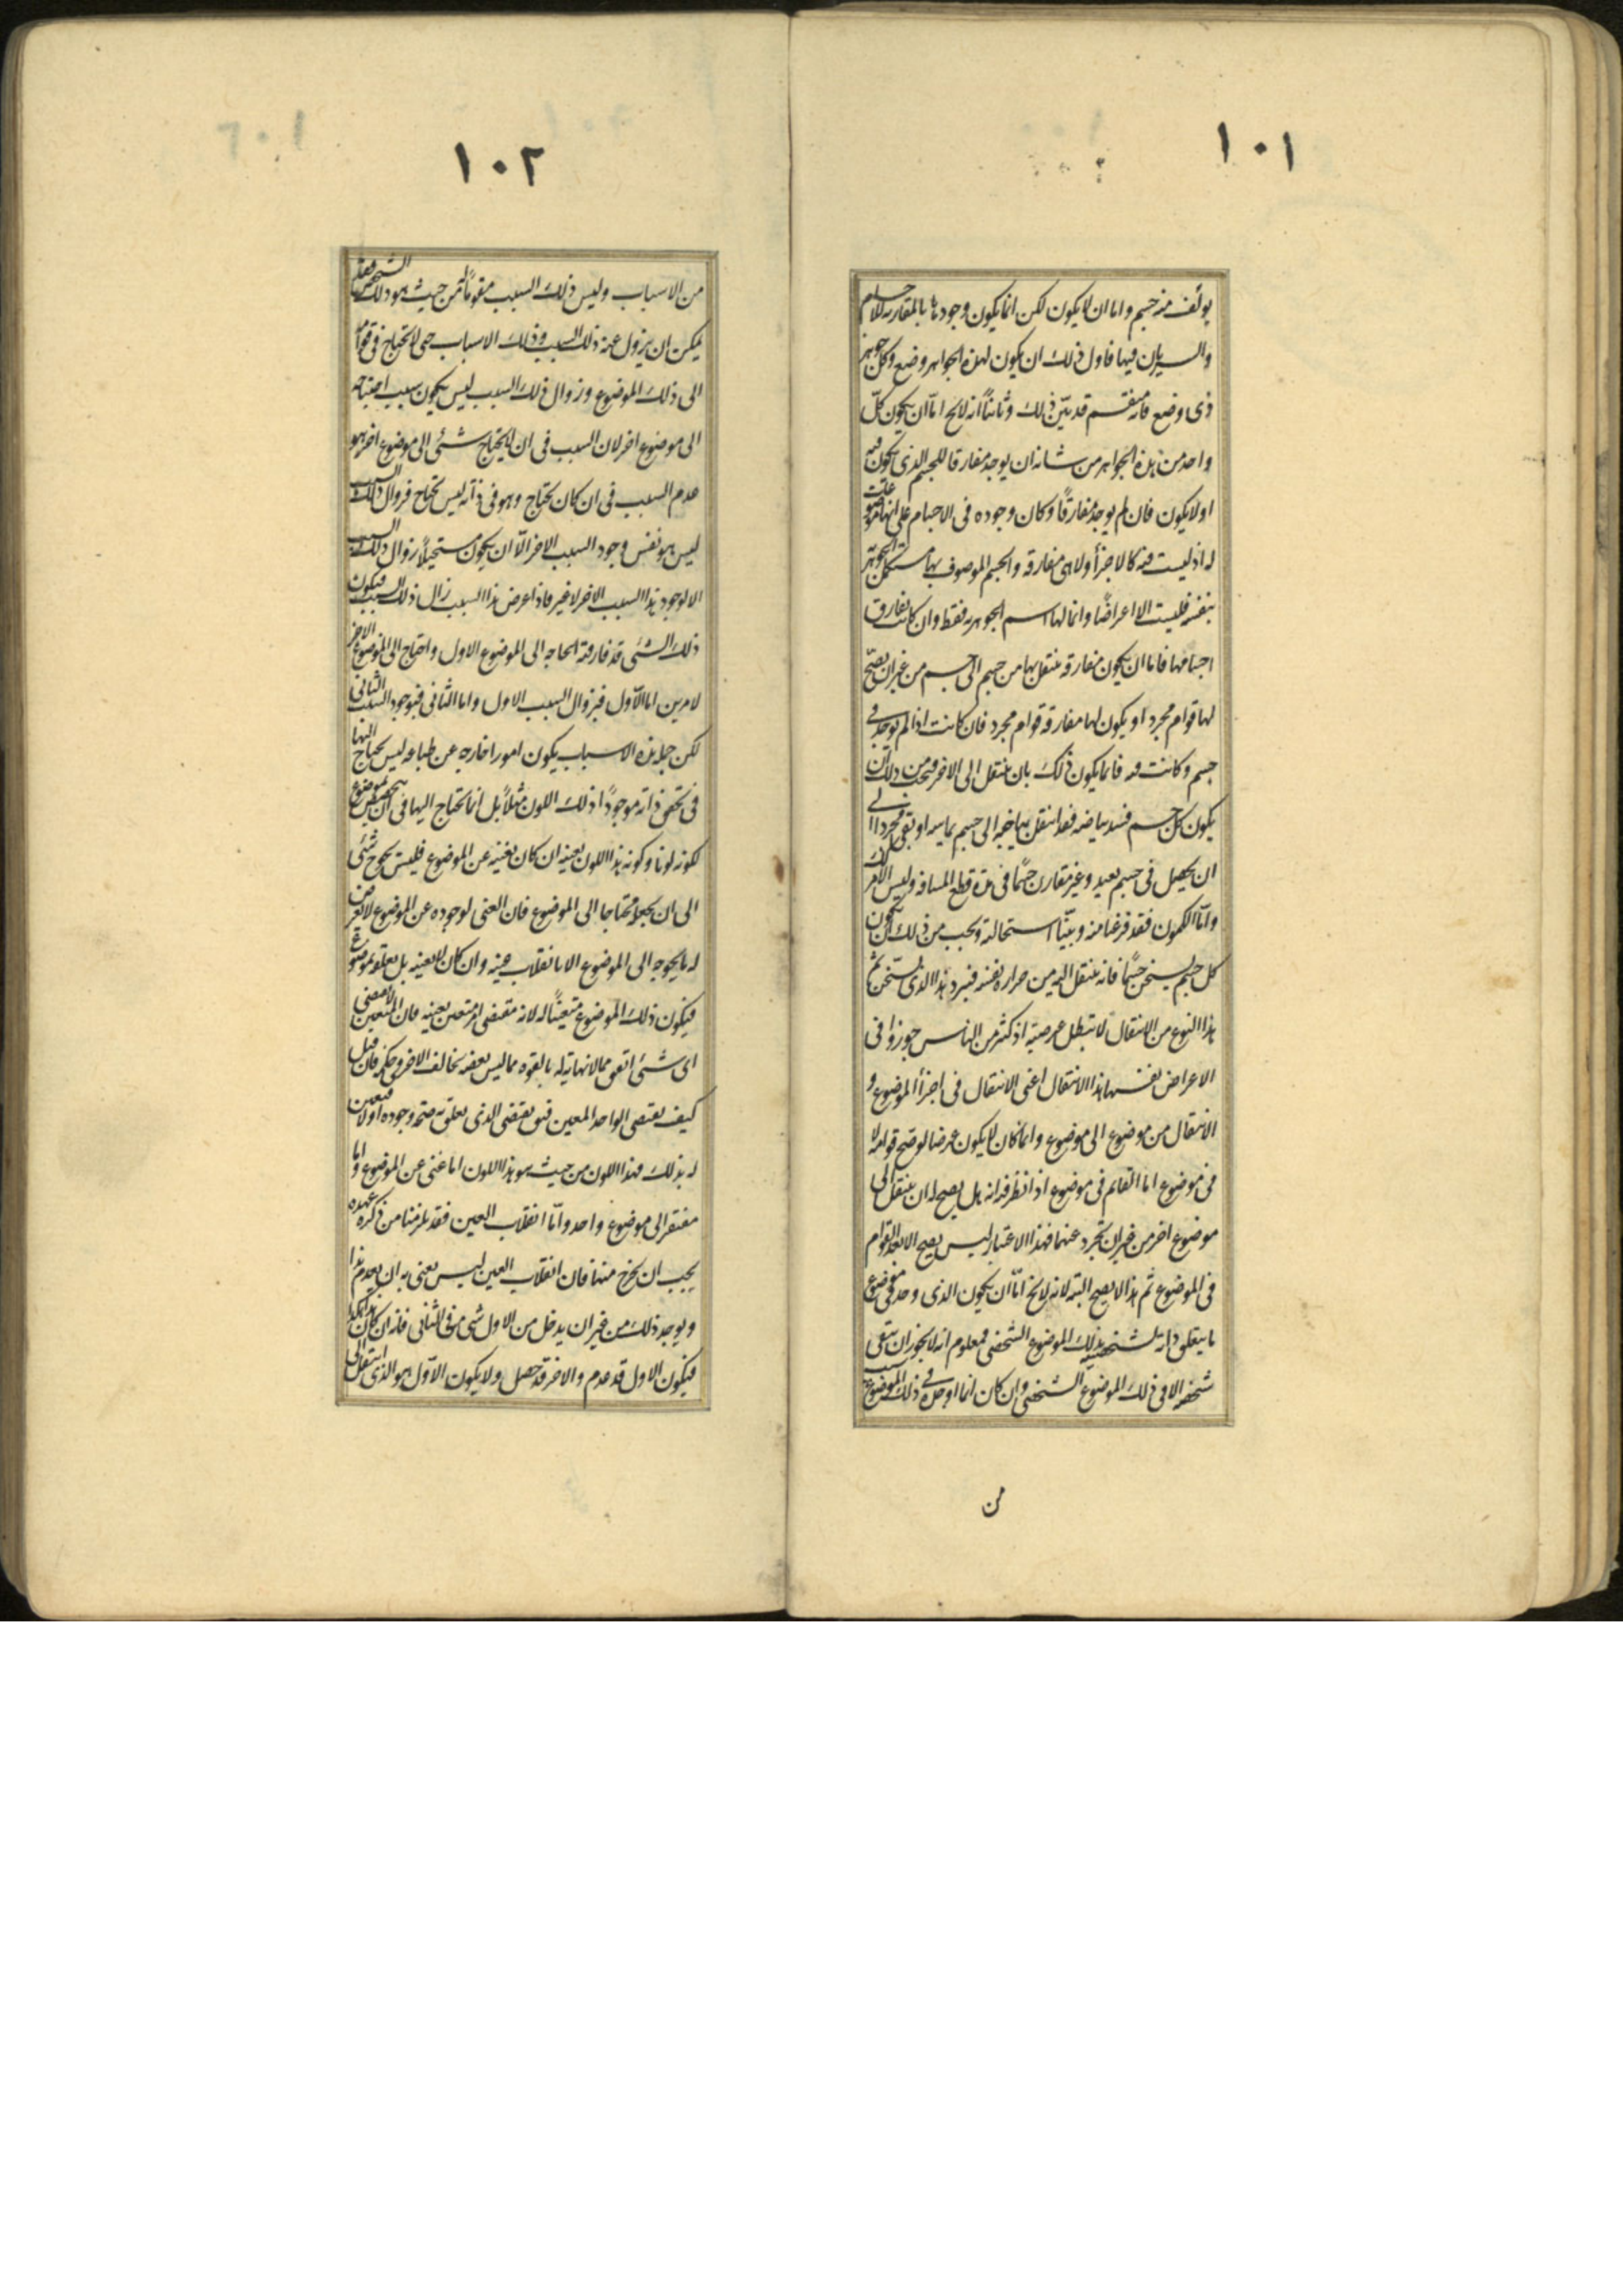 ١٠١
يولف منه جسم واما ان لا يكون لكن انما يكون وجودها بالمقارنه للاجسام
والسريان فيها فاول ذلك ان يكون لهذه الجواهر وضع وكل جوهر
ذى وضع فانه منقسم قد بيّن ذلك وثانياً انه لا يخ امّا ان يكون كلّ
واحد من هذه الجواهر من شانه ان يوجد مفارقا للجسم الذى يكون فيه
او لا يكون فان لم يوجد مفارقاً وكان وجوده فى الاجسام على انها موضوعة
له اذ ليست فيه كالاجزأ ولا هى مفارقه والجسم الموصوف بها مستكمل الجوهريّة
بنفسه فليست الا اعراضًا وانما لها اسم الجوهريه فقط وان كانت تفارق
اجسامها فاما ان يكون مفارقه ينتقل بها من جسم الى جسم من غير ان يصحّ
لها قوام مجرد او يكون لها مفارقة قوام مجرد فان كانت اذا لم يوجد فى
جسم وكانت فيه فانما يكون ذلك بان ينتقل الى الاخر فيجب من ذلك ان
يكون كل جسم فسد بياضه فقد انتقل بياضه الى جسم يماسه او بقى مجردا الى
ان يحصل فى جسم بعيد وغير مقارن جسمًا فى مدة قطع المسافه وليس الامر كذلك
وامّا الكمون فقد فرغنا منه وبيّنّا استحالته ويجب من ذلك ان يكون
كل جسم يسخن جسمًا فانه ينتقل اليه من حراره نفسه فيبرد هذا الذى يسخّن ثم
هذا النوع من الانتقال لا يبطل عرضيته اذ كثير من الناس جوزوا فى
الاعراض نفسها هذا الانتقال اعنى الانتقال فى اجزأ الموضوع و
الانتقال من موضوع الى موضوع وانما كان لا يكون عرضا لو صح قوامه لا
فى موضوع اما القايم فى موضوع اذا نظر فيه انه هل يصح له ان ينتقل الى
موضوع اخر من غير ان يتجرد عنهما فهذا الاعتبار ليس يصح الا بعد القوام
فى الموضوع ثم هذا لا يصح البته لانه لا يخ امّا ان يكون الذى وجد فى موضوع
ما يتعلق ذاته لشخصيته بذلك الموضوع الشخصى فمعلوم انه لا يجوز ان يبقى
شخصه الا فى ذلك الموضوع الشخصى وان كان انما اوجده فى ذلك الموضوع سبب
من
١٠٢
من الاسباب وليس ذلك السبب مقوماً له من حيث هو ذلك الشخص فقد
يمكن ان يزول عنه ذلك السبب وذلك الاسباب حى لا يحتاج فى قوامه
الى ذلك الموضوع وزوال ذلك السبب ليس يكون سبب احتياجه
الى موضوع اخر لان السبب فى ان لا يحتاج شئى الى موضوع اخر هو
عدم السبب فى ان كان يحتاج وهو فى ذاته ليس يحتاج فزوال ذلك السبب
ليس هو نفس وجود السبب الاخر الّا ان يكون مستحيلاً زوال ذلك السبب
الا لوجود هذا السبب الاخر لا غير فاذا عرض هذا السبب زال ذلك السبب فيكون
ذلك الشئى قد فارقته الحاجه الى الموضوع الاول واحتاج الى الموضوع الاخر
لامرين اما الاّول فبزوال السبب الاول واما الثانى فبوجود السبب الثانى
لكن جمله هذه الاسباب يكون امورا خارجه عن طباعه ليس يحتاج اليها
فى تحقق ذاته موجودًا ذلك اللون مثلاً بل انما يحتاج اليها فى ان يتخصص بموضوع
لكونه لونا وكونه هذا اللون بعينه ان كان يغنيه عن الموضوع فليس يحوج شئى
الى ان يجعله محتاجا الى الموضوع فان الغنى لوجوده عن الموضوع لا يعرض
له ما يحوجه الى الموضوع الا بانقلاب عينه وان كان لا يغنيه بل يعلقه بموضوع
فيكون ذلك الموضوع متعينًا له لانه مقتضى امر متعين بعينه فان المتعين لا يقتضى
اى شئى اتفق مما لا نهاية له بالقوه مما ليس بعضه يخالف الاخر فى حكمه فان قيل
كيف يقتضى الواحد المعين فنق يقتضى الذى يعلق به صحة وجوده اولا فيتعين
له بذلك فهذا اللون من حيث هو هذا اللون اما غنى عن الموضوع واما
مفتقر الى موضوع واحد وامّا انقلاب العين فقد يلزمنا من ذكره عهده
يجب ان يخرج منها فان انقلاب العين ليس يعنى به ان يعدم هذا
ويوجد ذلك من غير ان يدخل من الاول شئ من فى الثانى فانه ان كان هذا هكذا
فيكون الاول قد عدم والاخر قد حصل ولا يكون الاّول هو الذى انتقل الى